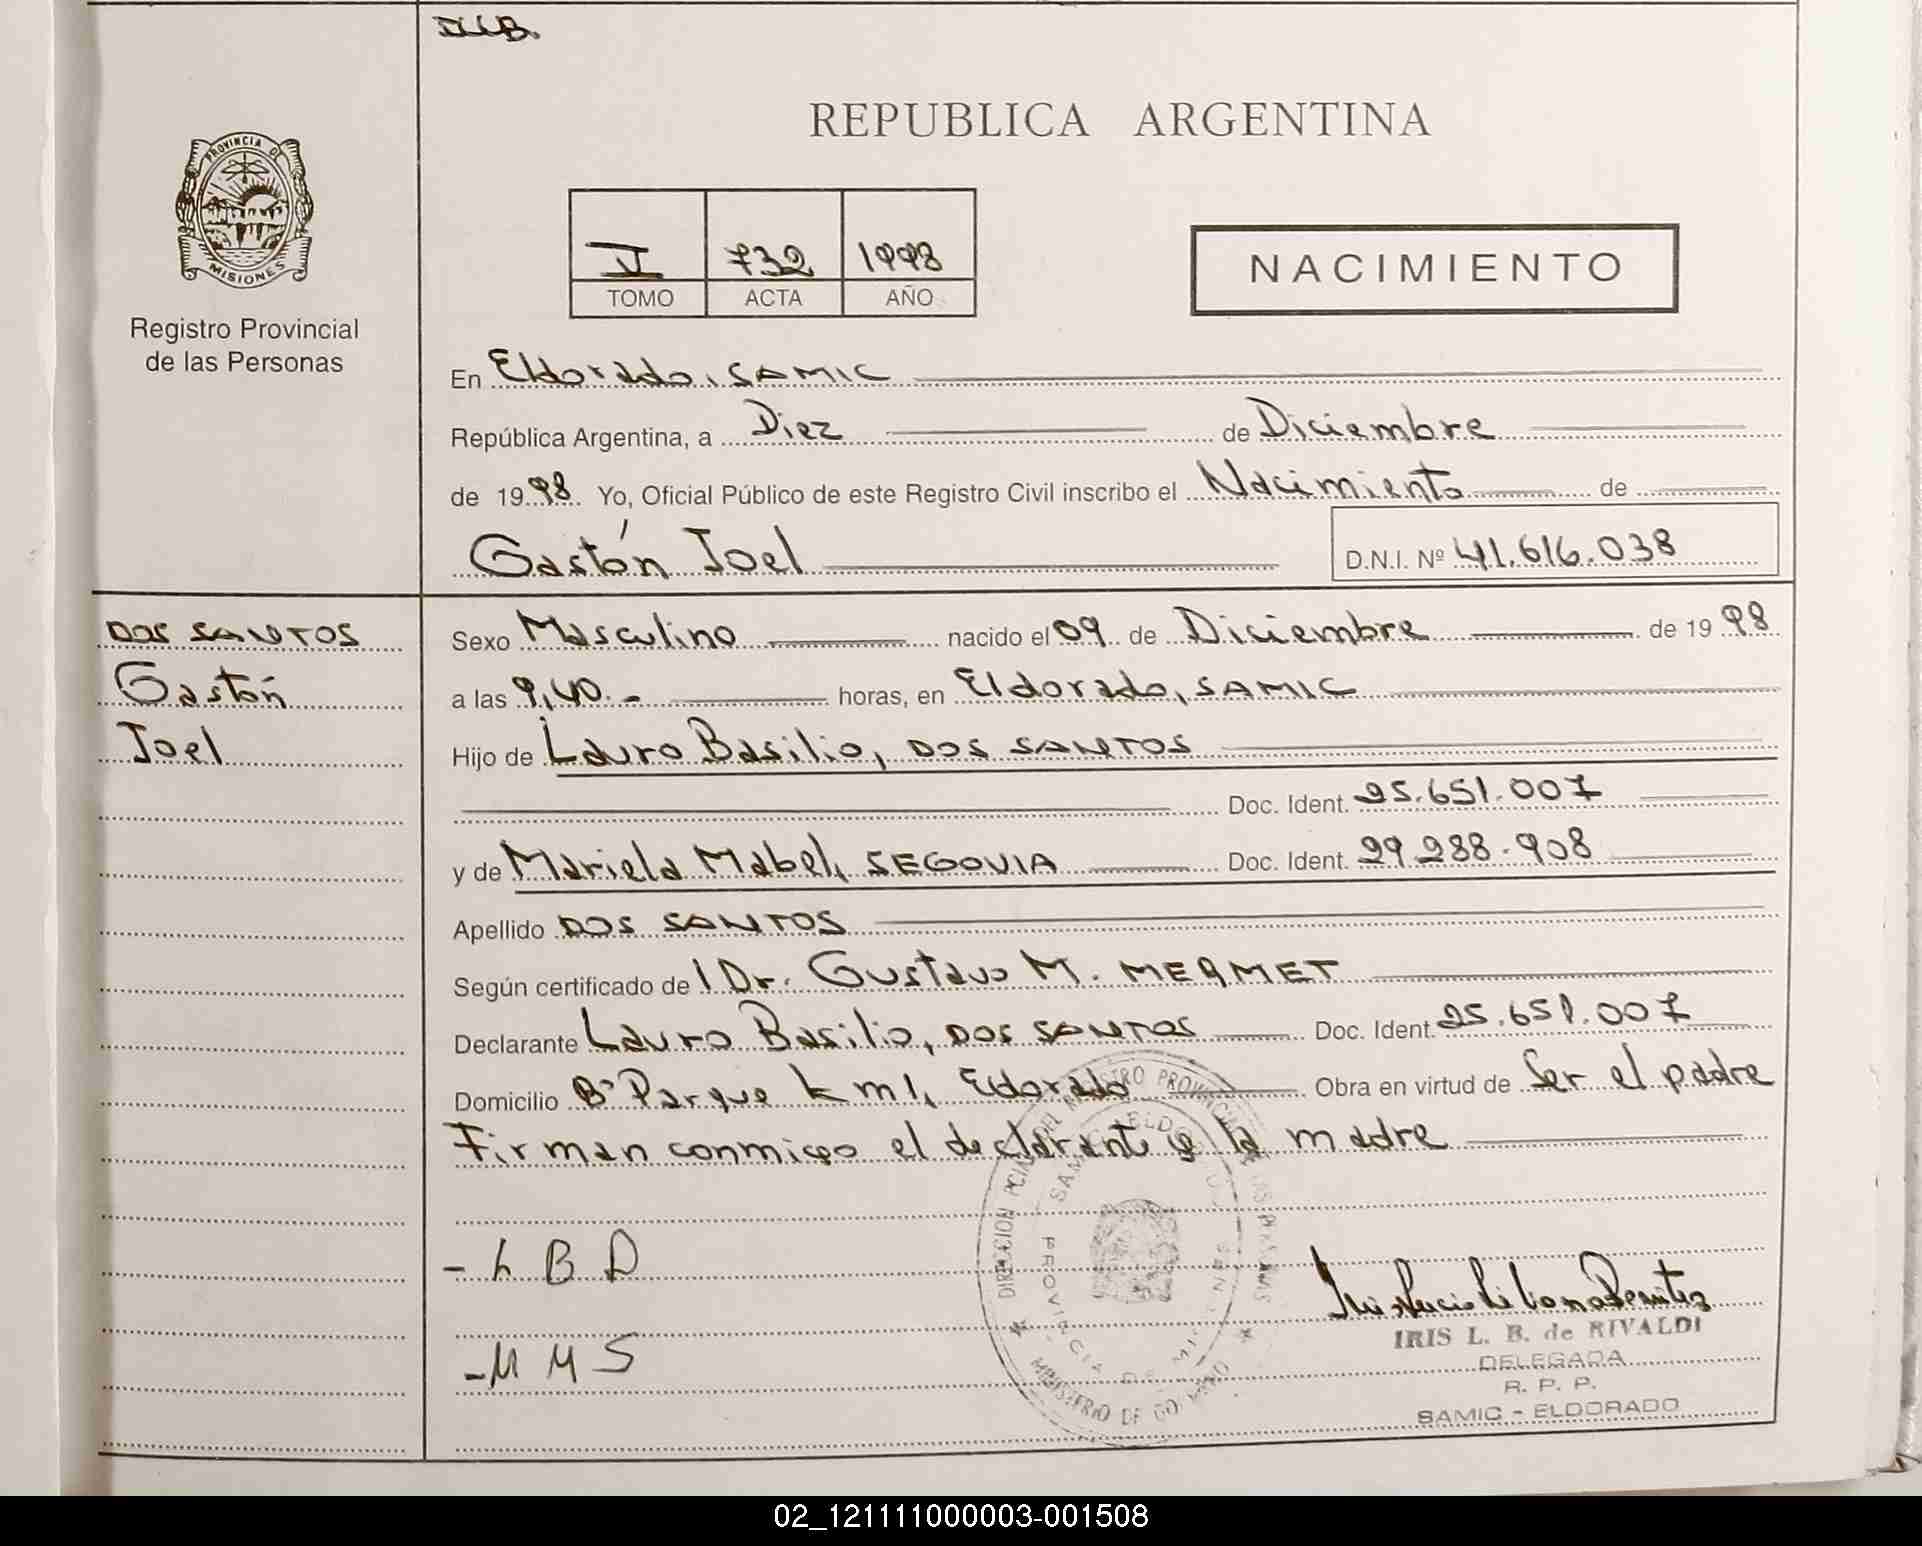 REPUBLICA ARGENTINA
PROVINCIA DE
MISIONES
Registro Provincial
de las Personas
V 732 1998
TOMO ACTA AÑO
NACIMIENTO
En Eldorado, SAMIC
República Argentina, a Diez de Diciembre
de 1998. Yo, Oficial Público de este Registro Civil inscribo el Nacimiento de
Gastón Joel D.N.I. Nº 41.616.038
DOS SANTOS
Gastón
Joel
Sexo Masculino nacido el 09 de Diciembre de 1998
a las 9,40.- horas, en Eldorado, SAMIC
Hijo de Lauro Basilio, DOS SANTOS
Doc. Ident. 25.651.007
y de Mariela Mabel, SEGOVIA Doc. Ident. 29.288.908
Apellido DOS SANTOS
Según certificado de l Dr. Gustavo M. MERMET
Declarante Lauro Basilio, DOS SANTOS Doc. Ident. 25.651.007
Domicilio Bº Parque km 1, Eldorado Obra en virtud de Ser el padre
Firman conmigo el declarante y la madre
- L B D
- M M S
IRIS L. B. de RIVALDI
DELEGADA
R. P. P.
SAMIC - ELDORADO
02_121111000003-001508